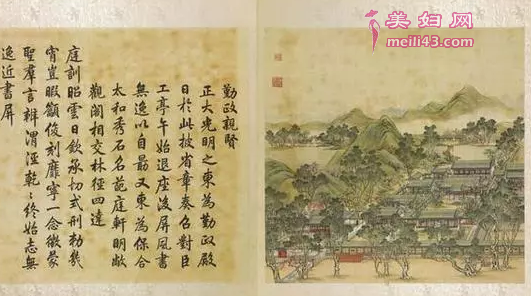 勤政親賢
正大光明之東為勤政殿
日於此披省章奏召對臣
工亭午始退座後屏風書
無逸以自勗又東為保合
太和秀石名葩庭軒明敞
觀閣相交林徑四達
庭訓昭雲日欽承切式刑勅幾
宵豈暇籲俊刻靡寧一念徵蒙
聖羣言辨渭涇乾〻終始志無
逸近書屏
美妇网
meili43.com